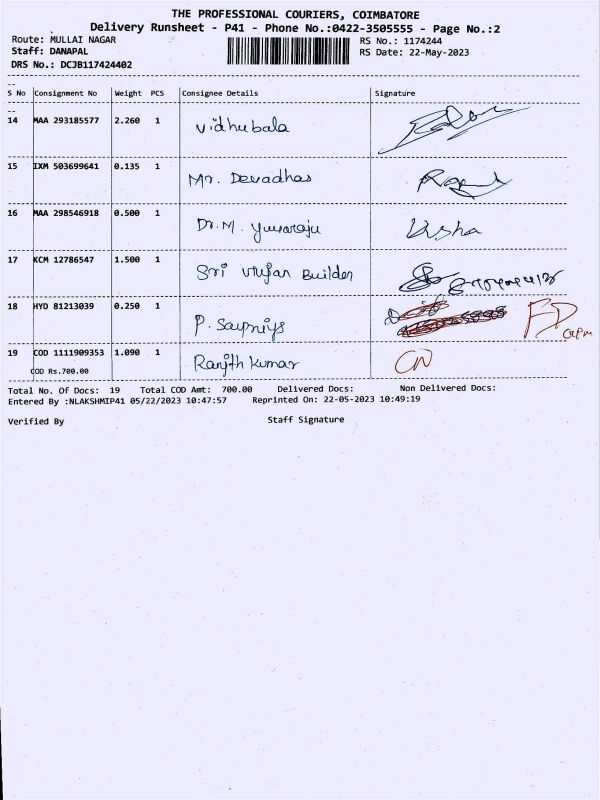 THE PROFESSIONAL COURIERS, COIMBATORE
Delivery Runsheet - P41 - Phone No.:0422-3505555 - Page No.:2
Route: MULLAI NAGAR RS No.: 1174244
Staff: DANAPAL RS Date: 22-May-2023
DRS No.: DCJB117424402
S No Consignment No Weight PCS Consignee Details Signature
14 MAA 293185577 2.260 1 Vidhubala
15 IXM 503699641 0.135 1 Mr. Devadhas
16 MAA 298546918 0.500 1 Dr. M. Yuvaraju Usha
17 KCM 12786547 1.500 1 Sri Builder
18 HYD 81213039 0.250 1 P.
19 COD 1111909353 1.090 1 Ranjith Kumar
COD Rs.700.00
Total No. Of Docs: 19 Total COD Amt: 700.00 Delivered Docs: Non Delivered Docs:
Entered By :NLAKSHMIP41 05/22/2023 10:47:57 Reprinted On: 22-05-2023 10:49:19
Verified By Staff Signature